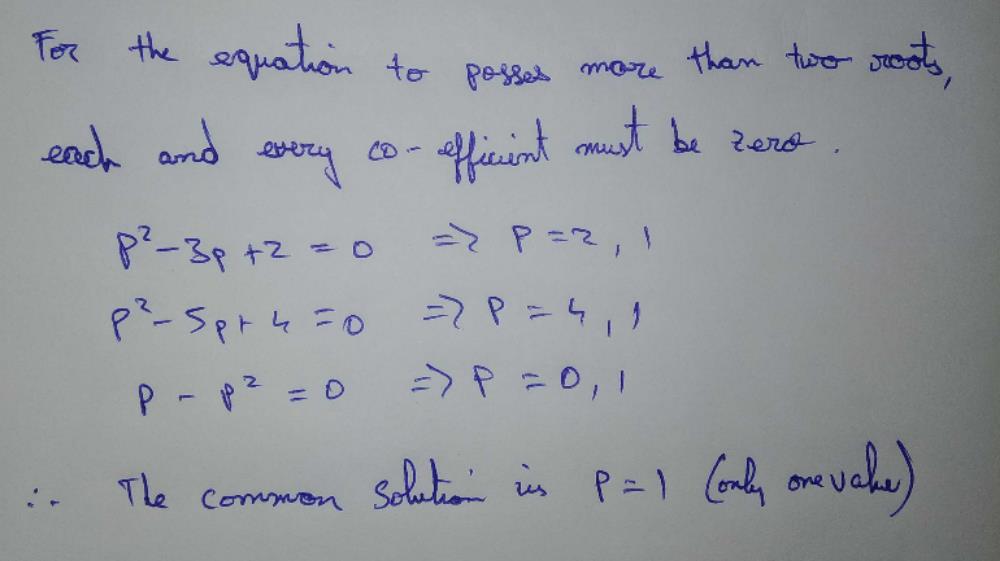 For the equation to posses more than two roots,
each and every co-efficient must be zero.
p² - 3p + 2 = 0 => P = 2, 1
p² - 5p + 4 = 0 => P = 4, 1
p - p² = 0 => P = 0, 1
∴ The common solution is P = 1 (only one value)